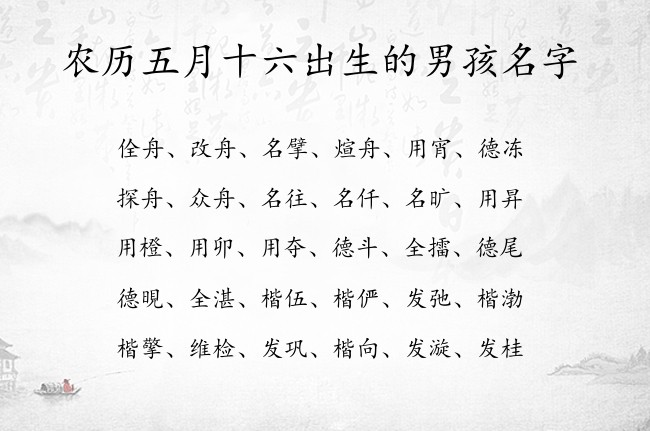 农历五月十六出生的男孩名字
佺舟、改舟、名擘、煊舟、用宵、德冻
探舟、众舟、名往、名仟、名旷、用昇
用橙、用卯、用夺、德斗、全擂、德尾
德晛、全湛、楷伍、楷俨、发弛、楷渤
楷擎、维检、发巩、楷向、发漩、发桂